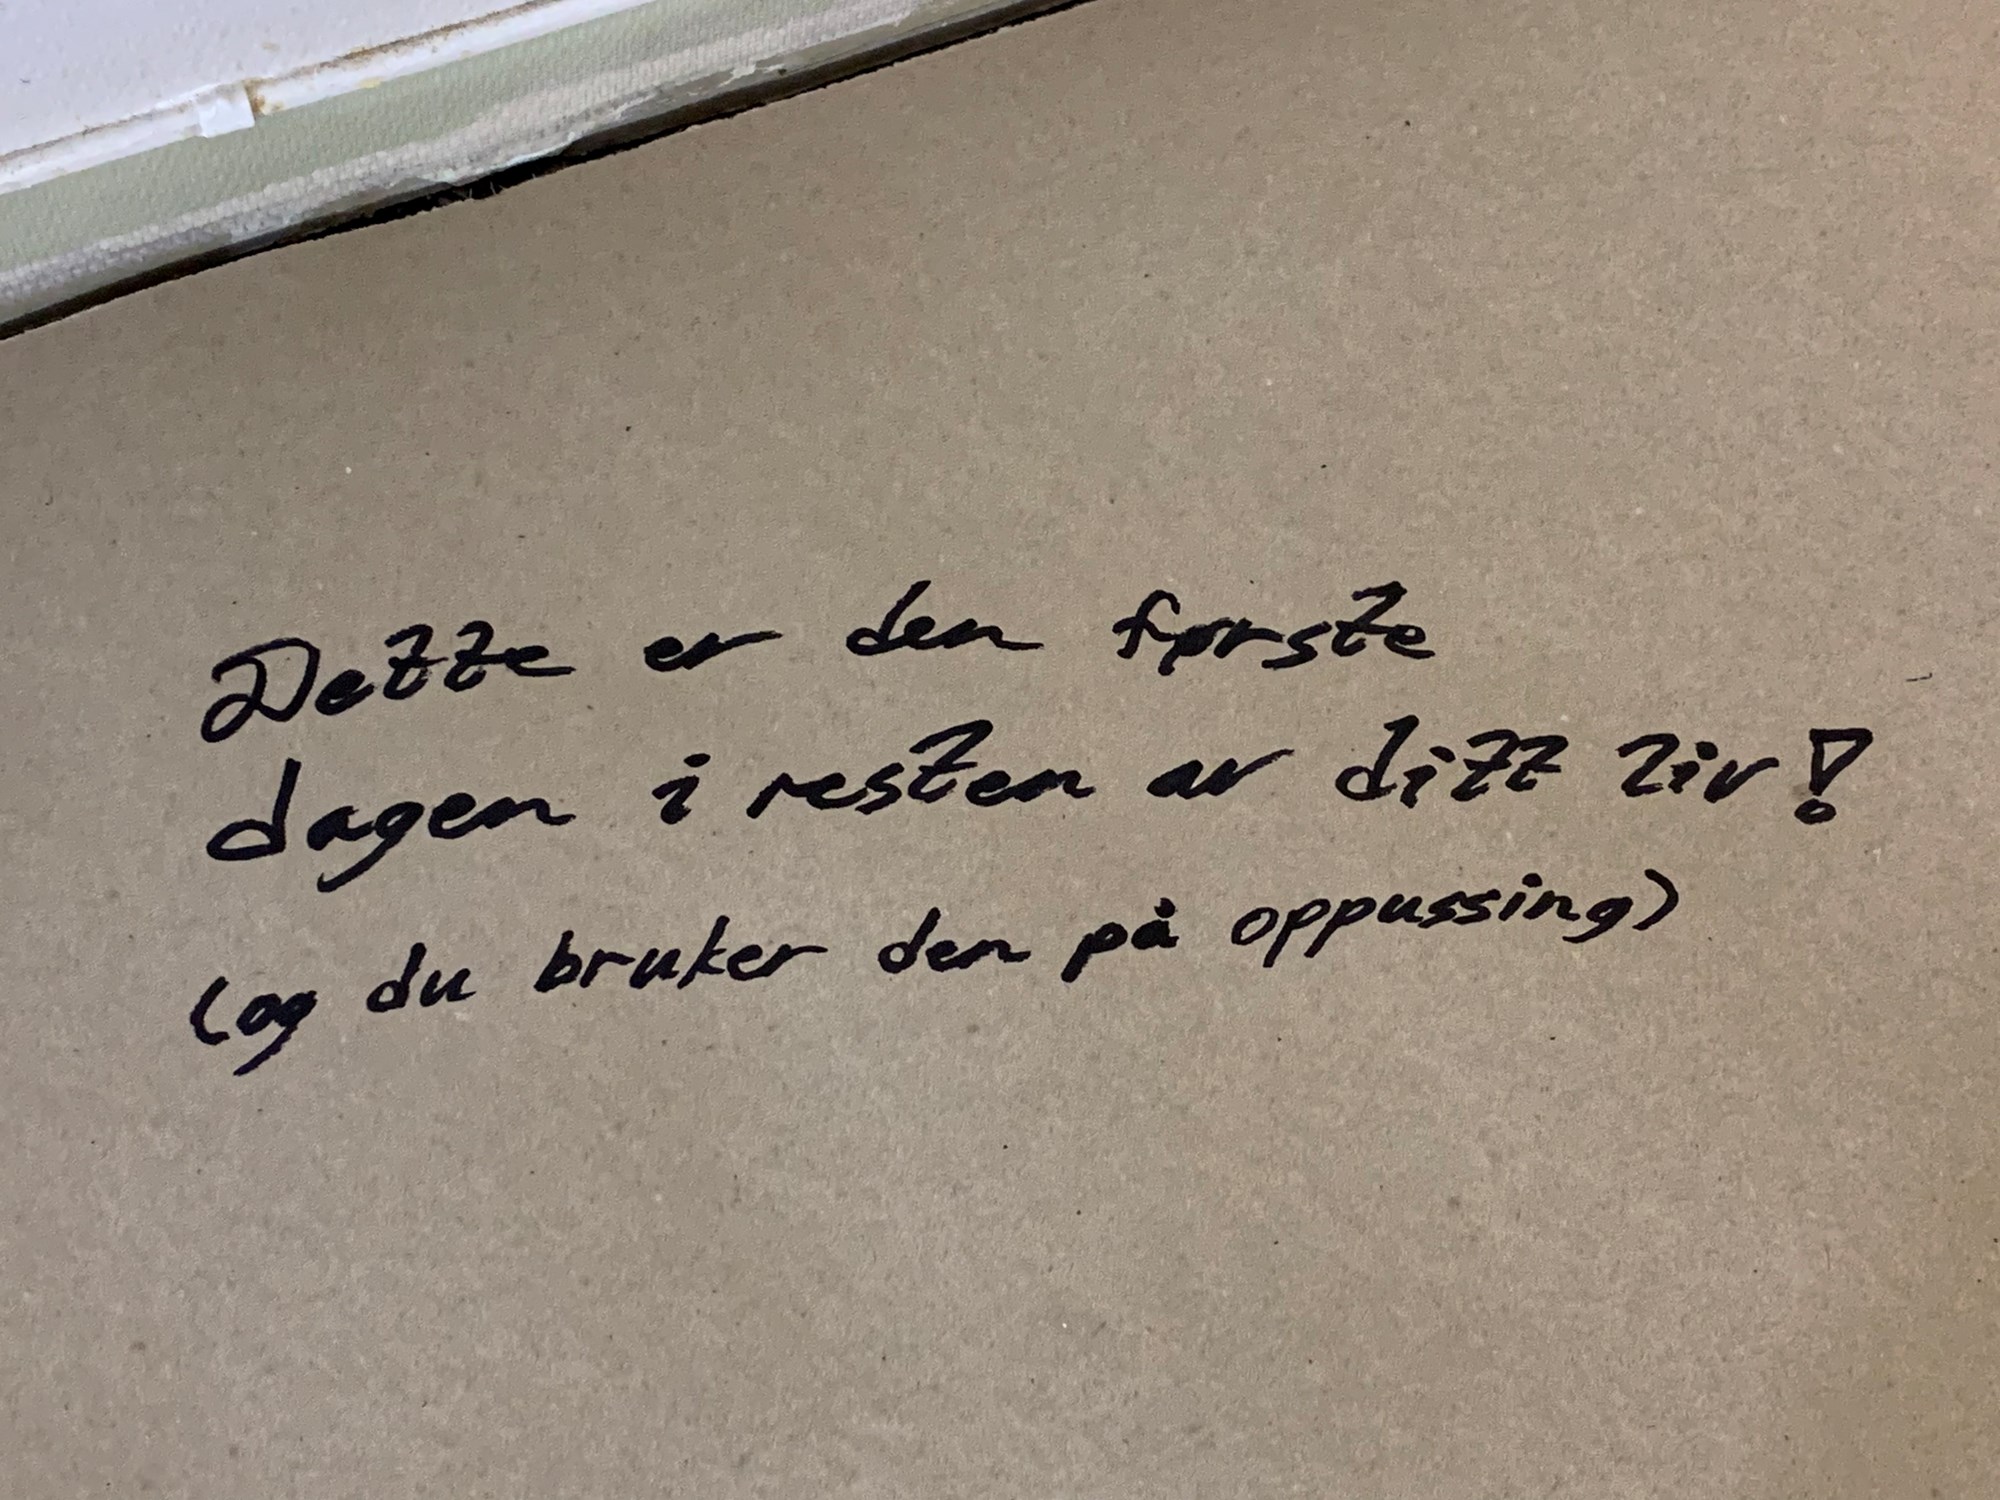 Dette er den første
dagen i resten av ditt liv!
(og du bruker den på oppussing)